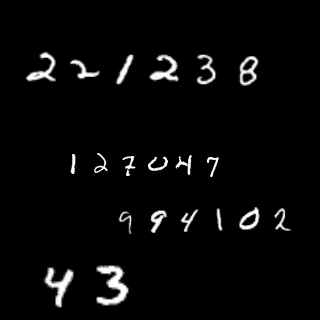 221238
127047
994102
43